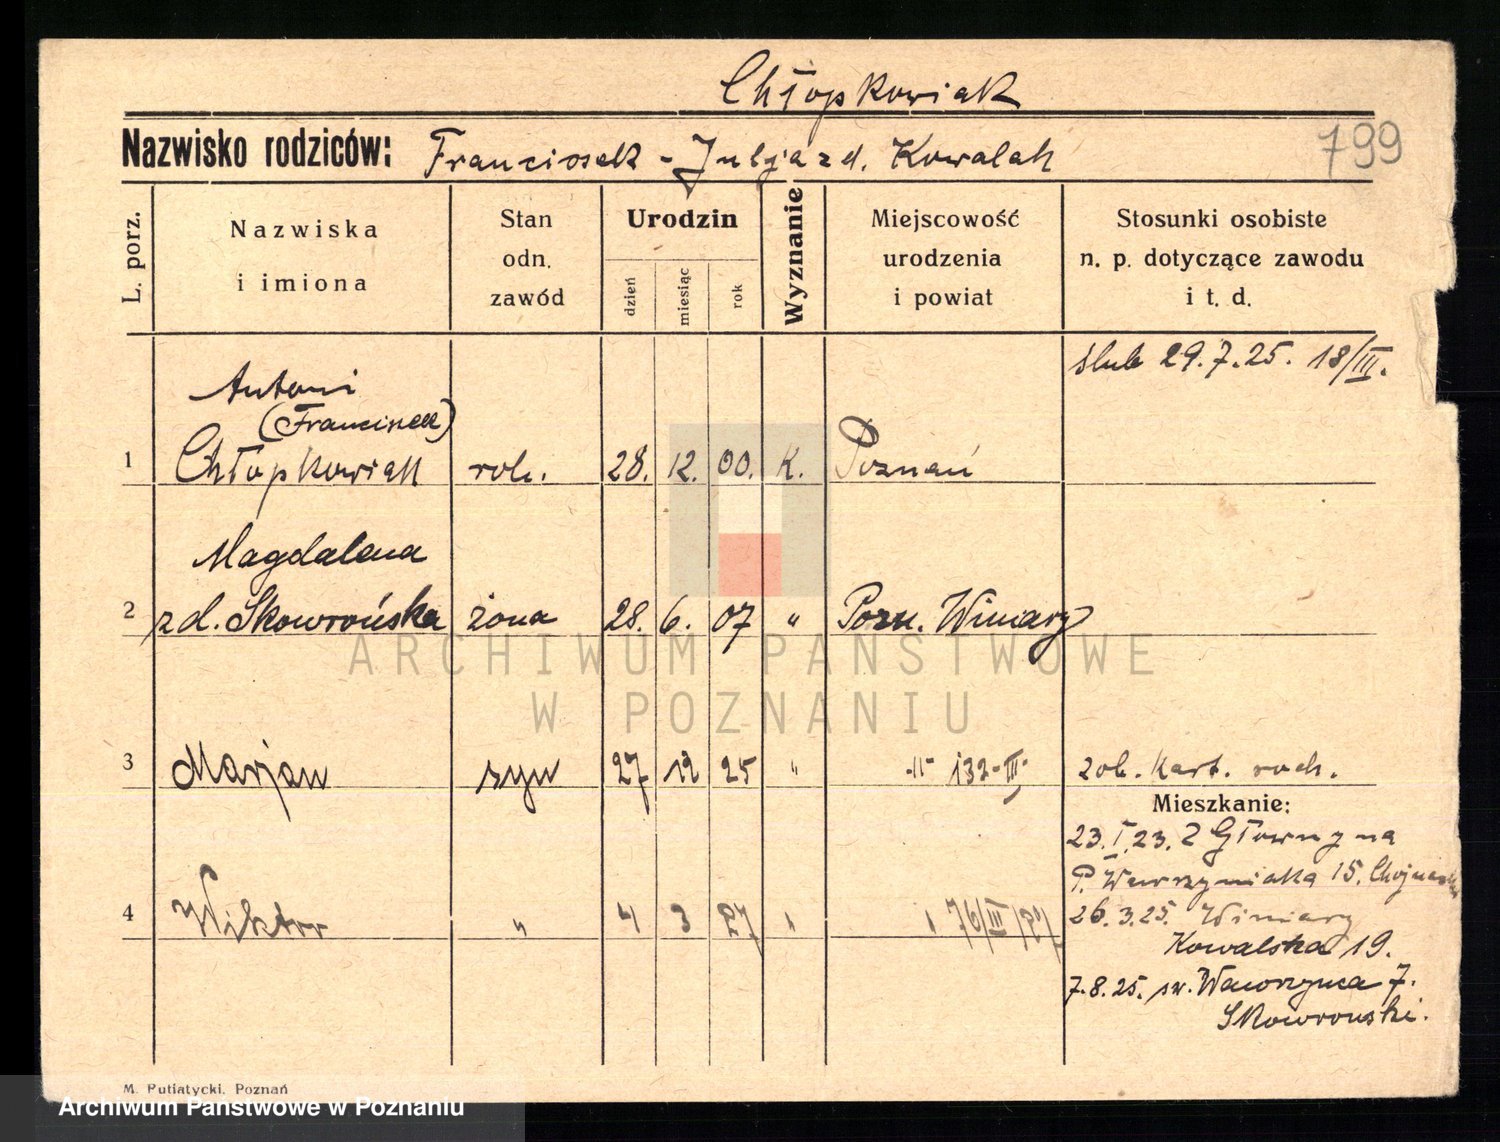 Chłopkowiak
Nazwisko rodziców: Franciszek - Julja zd. Kowalak
799
L. porz.
Nazwiska
i imiona
Stan
odn.
zawód
Urodzin
dzień
miesiąc
rok
Wyznanie
Miejscowość
urodzenia
i powiat
Stosunki osobiste
n. p. dotyczące zawodu
i t. d.
ślub 29.7.25. 18/III.
Antoni
(Franciszek)
1 Chłopkowiak rob. 28. 12. 00. K. Poznań
Magdalena
2 zd. Skowrońska żona 28. 6. 07 " Pozn. Winiary
ARCHIWUM PAŃSTWOWE
W POZNANIU
3 Marjan syn 27 12 25 " -"- 132-III- zob. kart. rodz.
Mieszkanie:
23.I.23. Z Głównyna
P. Wawrzyniaka 15.
4 Wiktor " 4 3 27 " "
26.3.25. Winiary
Kowalska 19.
7.8.25. św. Wawrzyńca 7.
Skowroński.
M. Putiatycki, Poznań
Archiwum Państwowe w Poznaniu